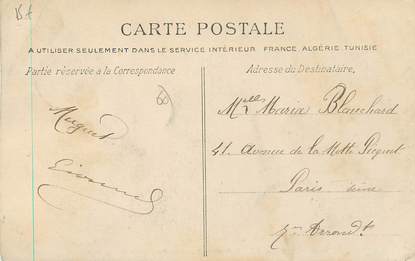 CARTE POSTALE
A UTILISER SEULEMENT DANS LE SERVICE INTÉRIEUR FRANCE ALGÉRIE TUNISIE
Partie réservée à la Correspondance
Adresse du Destinataire,
Muguet
Melle Maria Blanchard
41 Avenue de la Motte Picquet
Paris
7me Arrondt